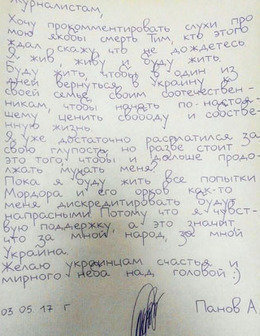 Журналистам,
Хочу прокомментировать слухи про
мою якобы смерть. Тим, кто этого
ждал скажу что не дождетесь
Я жив, живу и буду жить.
Буду жить, чтобы в один из
дней вернуться в Украину к
своей семье, своим соотечествен-
никам, чтобы начать по-настоя-
щему ценить свободу и собстве-
нную жизнь
Я уже достаточно расплатился за
свою глупость, но разве стоит
это того, чтобы и дальше продо-
лжать мучать меня.
Пока я буду жить все попытки
Мордора и его орков как-то
меня дискредитировать будут
напрасными. Потому что я чувст-
вую поддержку, а это значит,
что за мной, народ, за мной
Украина.
Желаю украинцам счастья и
мирного неба над головой :)
03 05. 17 г Панов А